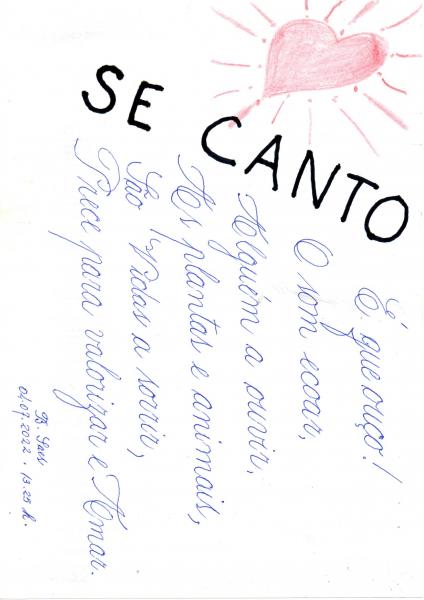 SE CANTO
É que ouço!
O som ecoar,
Alguém a ouvir.
As plantas e animais,
São Vidas a sorrir,
Prece para valorizar e Amar.
04.07.2022. 13.25 h.